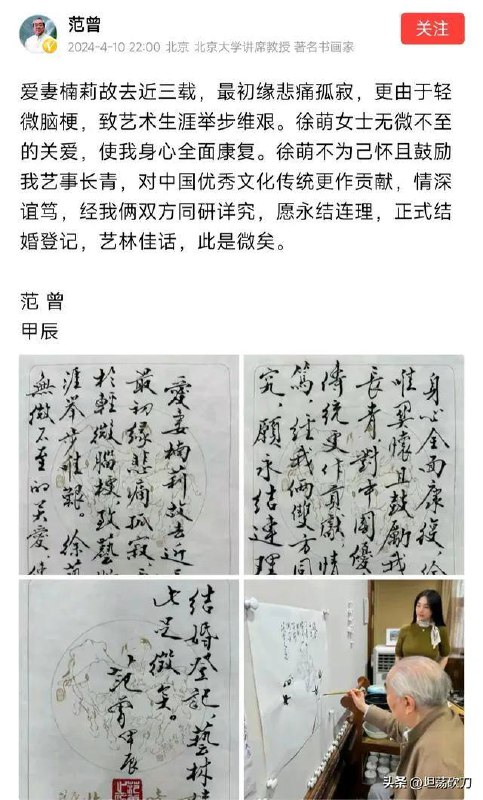 范曾
2024-4-10 22:00 北京 北京大学讲席教授 著名书画家
关注
爱妻楠莉故去近三载，最初缘悲痛孤寂，更由于轻
微脑梗，致艺术生涯举步维艰。徐萌女士无微不至
的关爱，使我身心全面康复。徐萌不为己怀且鼓励
我艺事长青，对中国优秀文化传统更作贡献，情深
谊笃，经我俩双方同研详究，愿永结连理，正式结
婚登记，艺林佳话，此是微矣。
范 曾
甲辰
愛妻楠莉故去近三
最初緣悲痛孤寂
於輕微腦梗致藝
涯舉步維艱。徐萌
無微不至的关愛，使
身心全面康復，徐
懷且鼓勵我
長青，對中國優
傳統更作貢獻，情
篤，經我倆雙方同
究，願永结連理
结婚登記，藝林
此是微矣。
范曾甲辰
头条 @坦荡砍刀